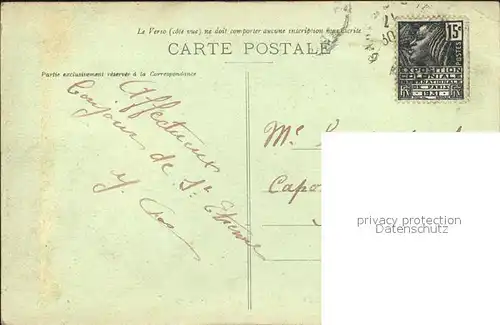 Le Verso (côté vue) ne doit comporter aucune inscription manuscrite
CARTE POSTALE
Partie exclusivement réservée à la Correspondance
Affectueux
Bonjour
de St Etienne
Y.
Me
Capo
15c
POSTES
EXPOSITION
COLONIALE
INTERNATIONALE
DE PARIS
1931
privacy protection
Datenschutz